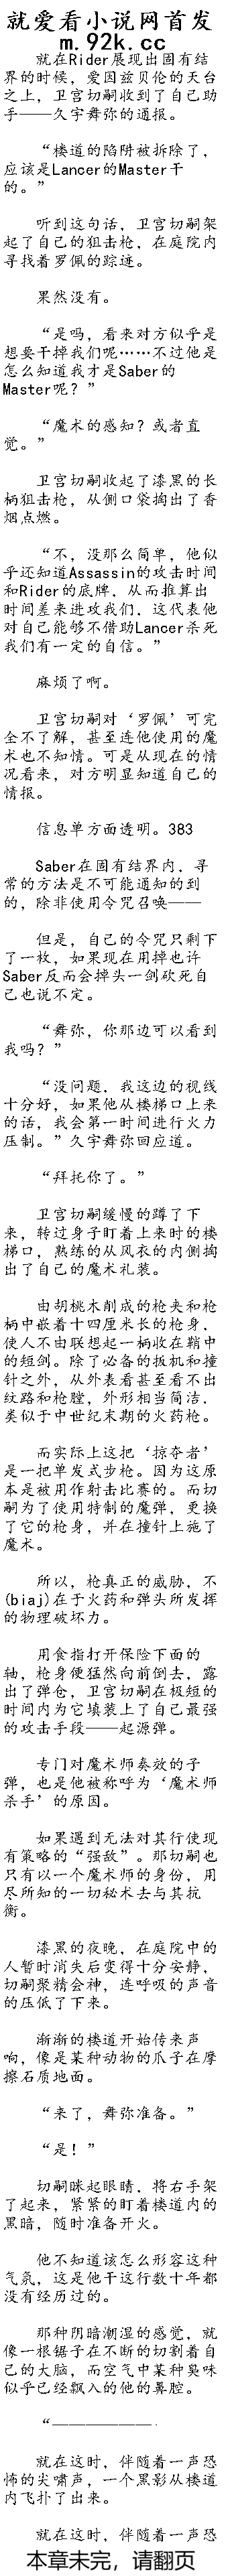 就爱看小说网首发
m.92k.cc
就在Rider展现出固有结
界的时候，爱因兹贝伦的天台
之上，卫宫切嗣收到了自己助
手——久宇舞弥的通报。
“楼道的陷阱被拆除了，
应该是Lancer的Master干
的。”
听到这句话，卫宫切嗣架
起了自己的狙击枪，在庭院内
寻找着罗佩的踪迹。
果然没有。
“是吗，看来对方似乎是
想要干掉我们呢……不过他是
怎么知道我才是Saber的
Master呢？”
“魔术的感知？或者直
觉。”
卫宫切嗣收起了漆黑的长
柄狙击枪，从侧口袋掏出了香
烟点燃。
“不，没那么简单，他似
乎还知道Assassin的攻击时间
和Rider的底牌，从而推算出
时间差来进攻我们，这代表他
对自己能够不借助Lancer杀死
我们有一定的自信。”
麻烦了啊。
卫宫切嗣对‘罗佩’可完
全不了解，甚至连他使用的魔
术也不知情。可是从现在的情
况看来，对方明显知道自己的
情报。
信息单方面透明。383
Saber在固有结界内，寻
常的方法是不可能通知的到
的，除非使用令咒召唤——
但是，自己的令咒只剩下
了一枚，如果现在用掉也许
Saber反而会掉头一剑砍死自
己也说不定。
“舞弥，你那边可以看到
我吗？”
“没问题，我这边的视线
十分好，如果他从楼梯口上来
的话，我会第一时间进行火力
压制。”久宇舞弥回应道。
“拜托你了。”
卫宫切嗣缓慢的蹲了下
来，转过身子盯着上来时的楼
梯口，熟练的从风衣的内侧掏
出了自己的魔术礼装。
由胡桃木削成的枪夹和枪
柄中嵌着十四厘米长的枪身，
使人不由联想起一柄收在鞘中
的短剑。除了必备的扳机和撞
针之外，从外表看甚至看不出
纹路和枪膛，外形相当简洁，
类似于中世纪末期的火药枪。
而实际上这把‘掠夺者’
是一把单发式步枪。因为这原
本是被用作射击比赛的。而切
嗣为了使用特制的魔弹，更换
了它的枪身，并在撞针上施了
魔术。
所以，枪真正的威胁，不
(biaj)在于火药和弹头所发挥
的物理破坏力。
用食指打开保险下面的
轴，枪身便猛然向前倒去，露
出了弹仓，卫宫切嗣在极短的
时间内为它填装上了自己最强
的攻击手段——起源弹。
专门对魔术师奏效的子
弹，也是他被称呼为‘魔术师
杀手’的原因。
如果遇到无法对其行使现
有策略的“强敌”。那切嗣也
只有以一个魔术师的身份，用
尽所知的一切秘术去与其抗
衡。
漆黑的夜晚，在庭院中的
人暂时消失后变得十分安静，
切嗣聚精会神，连呼吸的声音
的压低了下来。
渐渐的楼道开始传来声
响，像是某种动物的爪子在摩
擦石质地面。
“来了，舞弥准备。”
“是！”
切嗣眯起眼睛，将右手架
了起来，紧紧的盯着楼道内的
黑暗，随时准备开火。
他不知道该怎么形容这种
气氛，这是他干这行数十年都
没有经历过的。
那种阴暗潮湿的感觉，就
像一根锯子在不断的切割着自
己的大脑，而空气中某种臭味
似乎已经飘入的他的鼻腔。
“——————．
就在这时，伴随着一声恐
怖的尖啸声，一个黑影从楼道
内飞扑了出来。
就在这时，伴随着一声恐
本章未完，请翻页